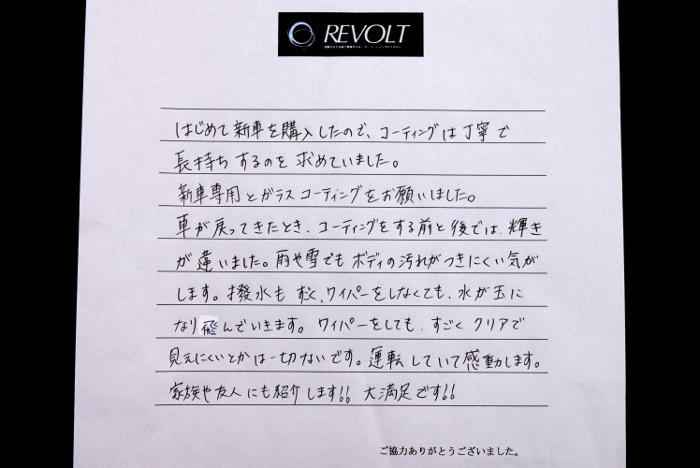 REVOLT
はじめて新車を購入したので、コーティングは丁寧で
長持ちするのを求めていました。
新車専用とガラスコーティングをお願いしました。
車が戻ってきたとき、コーティングをする前と後では、輝き
が違いました。雨や雪でもボディの汚れがつきにくい気が
します。撥水もすぐ、ワイパーをしなくても、水が玉に
なり飛んでいきます。ワイパーをしても、すごくクリアで
見えにくいとかは一切ないです。運転していて感動します。
家族や友人にも紹介します!! 大満足です!!
ご協力ありがとうございました。